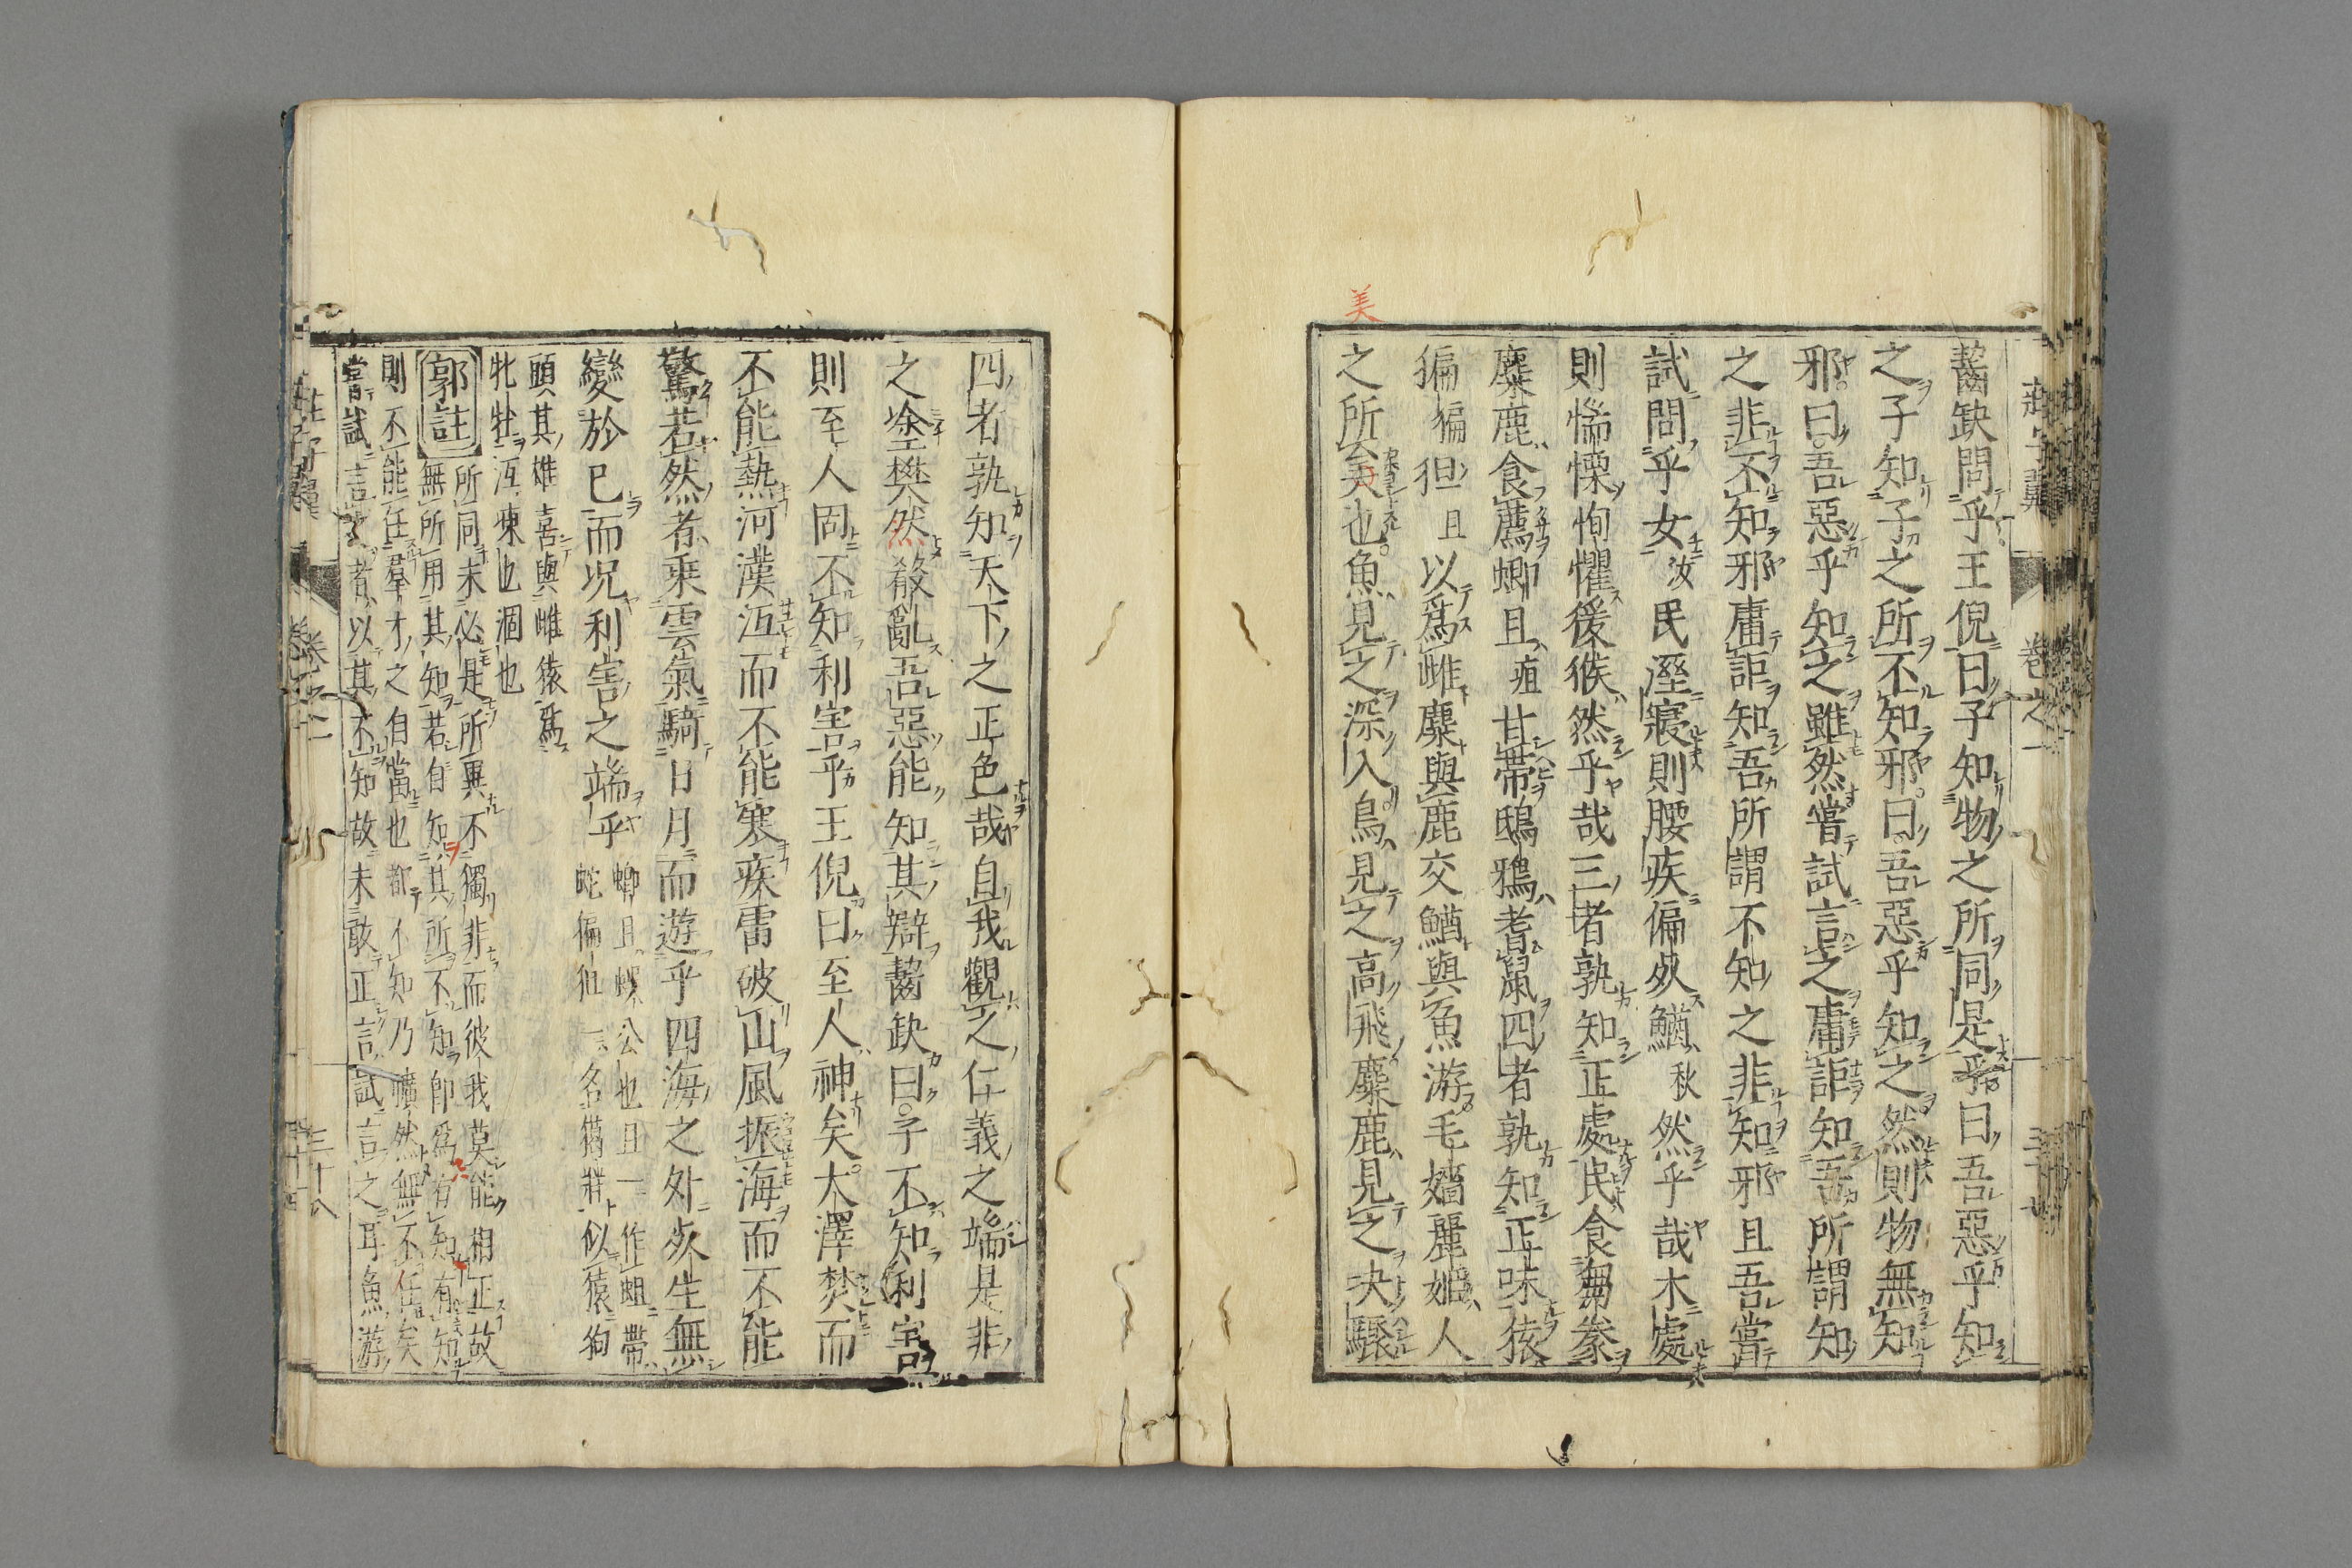 美
齧缺問乎王倪曰子知物之所同是乎曰吾惡乎知
之子知子之所不知邪曰吾惡乎知之然則物無知
邪曰吾惡乎知之雖然嘗試言之庸詎知吾所謂知
之非不知邪庸詎知吾所謂不知之非知邪且吾嘗
試問乎女汝民溼寢則腰疾偏死鰌秋然乎哉木處
則惴慄恂懼猨猴然乎哉三者孰知正處民食芻豢
麋鹿食薦蝍且疽甘帶鴟鴉耆鼠四者孰知正味猨
猵偏狙且以爲雌麋與鹿交鰌與魚游毛嬙麗姬人
之所美也魚見之深入鳥見之高飛麋鹿見之決驟
四者孰知天下之正色哉自我觀之仁義之端是非
之塗樊然殽亂吾惡能知其辯齧缺曰子不知利害
則至人固不知利害乎王倪曰至人神矣大澤焚而
不能熱河漢沍而不能寒疾雷破山風振海而不能
驚若然者乘雲氣騎日月而遊乎四海之外死生無
變於已而况利害之端乎
蝍且蜈公也且一作蛆帶
蛇偏狙一名獦牂似猿狗
頭其雄喜與雌猿爲
牝牡沍凍也涸也
郭註
所同未必是所異不獨非而彼我莫能相正故
無所用其知若自知其所不知卽爲有知有知
則不能任羣才之自當也都不知乃曠然無不任矣
嘗試言之者以其不知故未敢正言試言之耳魚游
莊子翼
卷之一